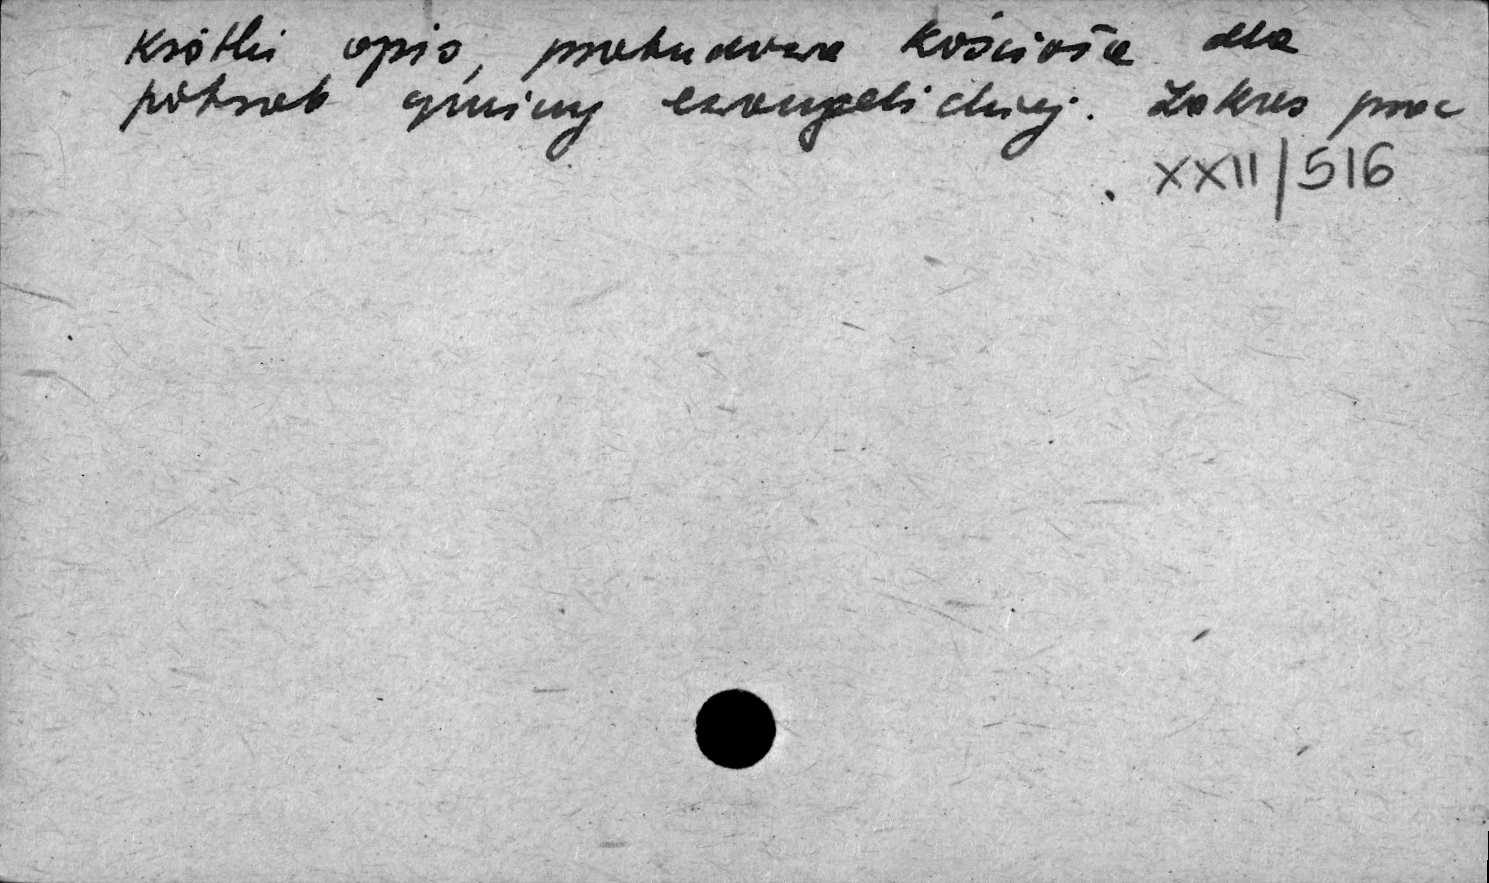 krótki opis, przebudowa kościoła dla
potrzeb gminy ewangelickiej. Zakres prac
XXII/516